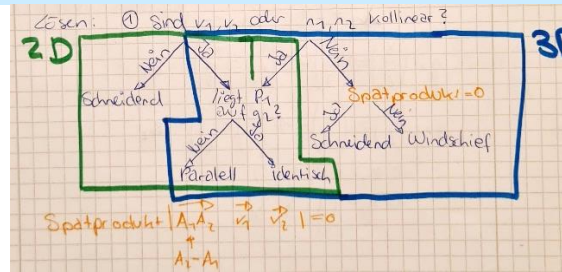 Lösen: ① Sind v₁, v₂ oder n₁, n₂ kollinear?
2D
3D
Nein Ja Ja Nein
Schneidend liegt P₁ Spatprodukt=0
auf g₂?
Nein Ja Ja Nein
Schneidend Windschief
Paralell identisch
Spatprodukt |A₁A₂ v₁ v₂| = 0